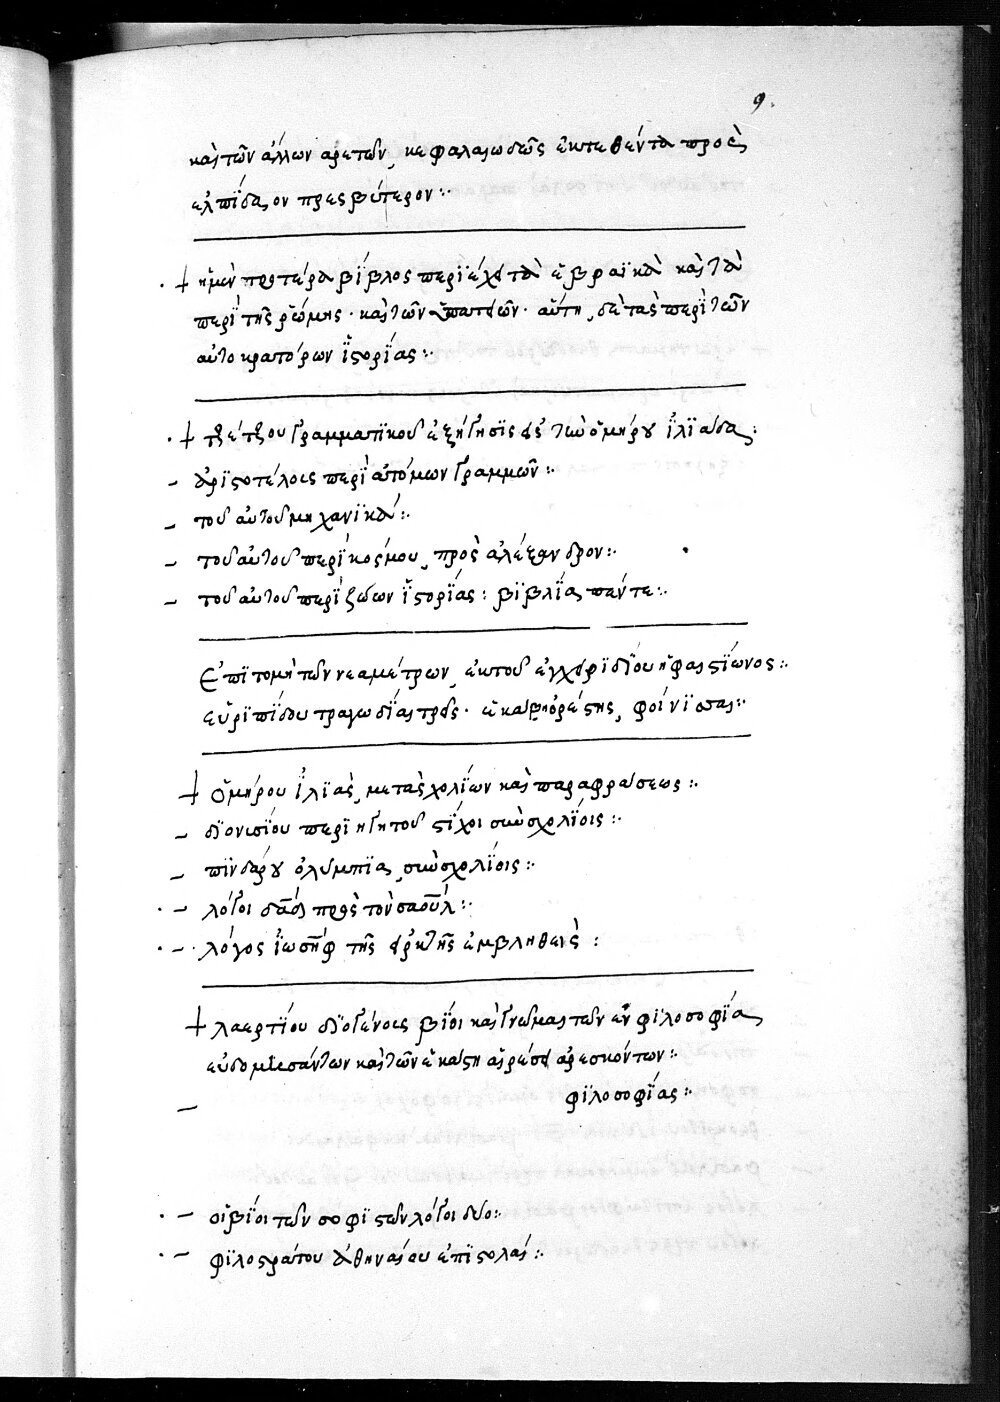 9.
καὶ τῶν ἄλλων ἀρετῶν, κεφαλαιωδῶς ἐκτεθέντα πρὸς
ἐλπίδιον πρεσβύτερον:
+ ἡ μὲν προτέρα βίβλος περιέχει τὰ ἑβραϊκὰ καὶ τὰ
περὶ τῆς ῥώμης· καὶ τῶν ὑπατιῶν· αὕτη, δὲ τὰς περὶ τῶν
αὐτοκρατόρων ἱστορίας:
+ τζέτζου γραμματικοῦ ἐξήγησις εἰς τὴν ὁμήρου ἰλιάδα:
– ἀριστοτέλους περὶ ἀτόμων γραμμῶν:
– τοῦ αὐτοῦ μηχανικά:
– τοῦ αὐτοῦ περὶ κόσμου, πρὸς ἀλέξανδρον:
– τοῦ αὐτοῦ περὶ ζώων ἱστορίας: βιβλία πέντε:
Ἐπιτομὴ τῶν νέα μέτρων, ἐκ τοῦ ἐγχειριδίου ἡφαιστίωνος:
εὐριπίδου τραγωδίαι τρεῖς· ἑκάβη ὀρέστης, φοίνισσαι:
+ ὁμήρου ἰλιὰς, μετὰ σχολίων καὶ παραφράσεως:
– διονυσίου περιηγητοῦ στίχοι σὺν σχολίοις:
– πινδάρου ὀλύμπια, σὺν σχολίοις:
– λόγοι δαδ πρὸς τὸν σαούλ:
– λόγος ἰωσὴφ τῆς εἱρκτῆς ἐμβληθείς:
+ λαερτίου διογένους βίοι καὶ γνῶμαι τῶν ἐν φιλοσοφία
εὐδοκιμησάντων καὶ τῶν ἑκάστη αἱρέσει ἀρεσκόντων:
– φιλοσοφίας:
– οἱ βίοι τῶν σοφιστῶν λόγοι δύο:
– φιλοστράτου ἀθηναίου ἐπιστολαί: